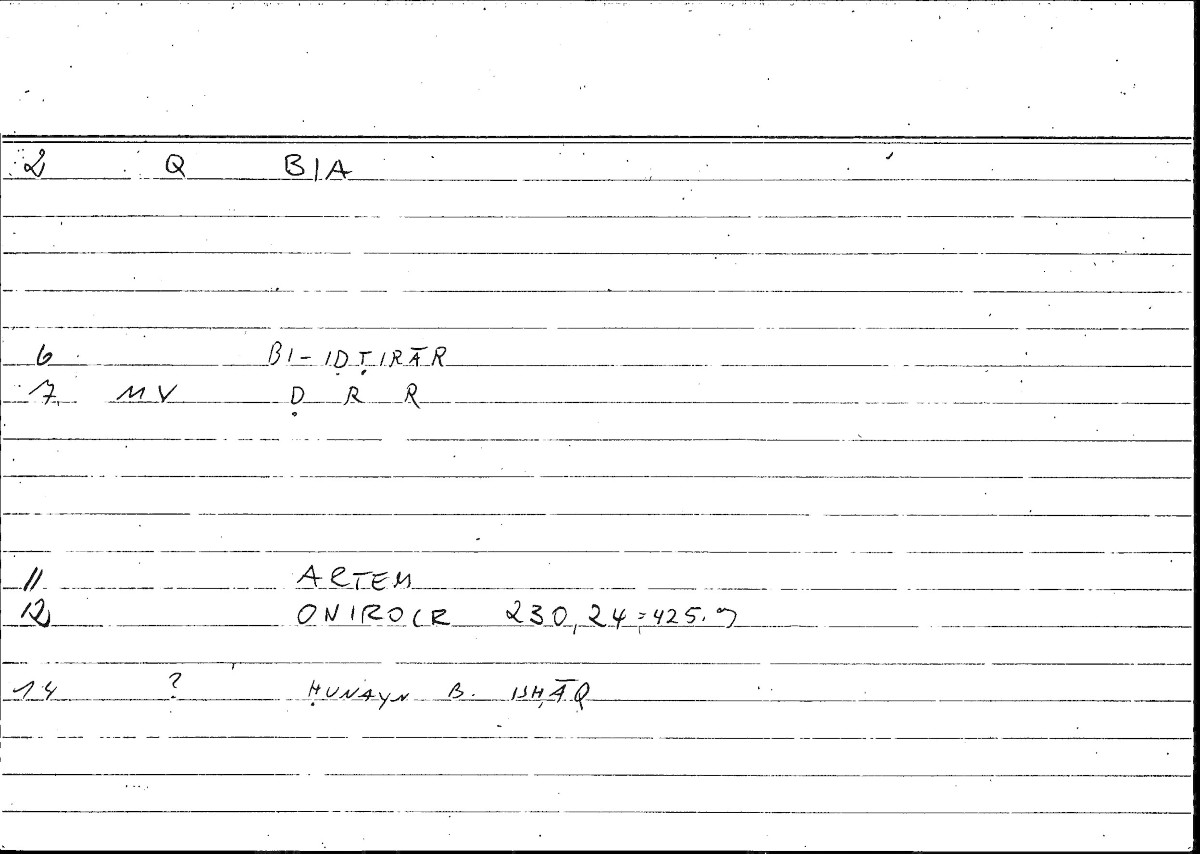 2 Q BIA
6 BI-IḌṬIRĀR
7 MV Ḍ R R
11 ARTEM
12 ONIROCR 230,24=425.9
14 ? ḤUNAYN B. ISḤĀQ